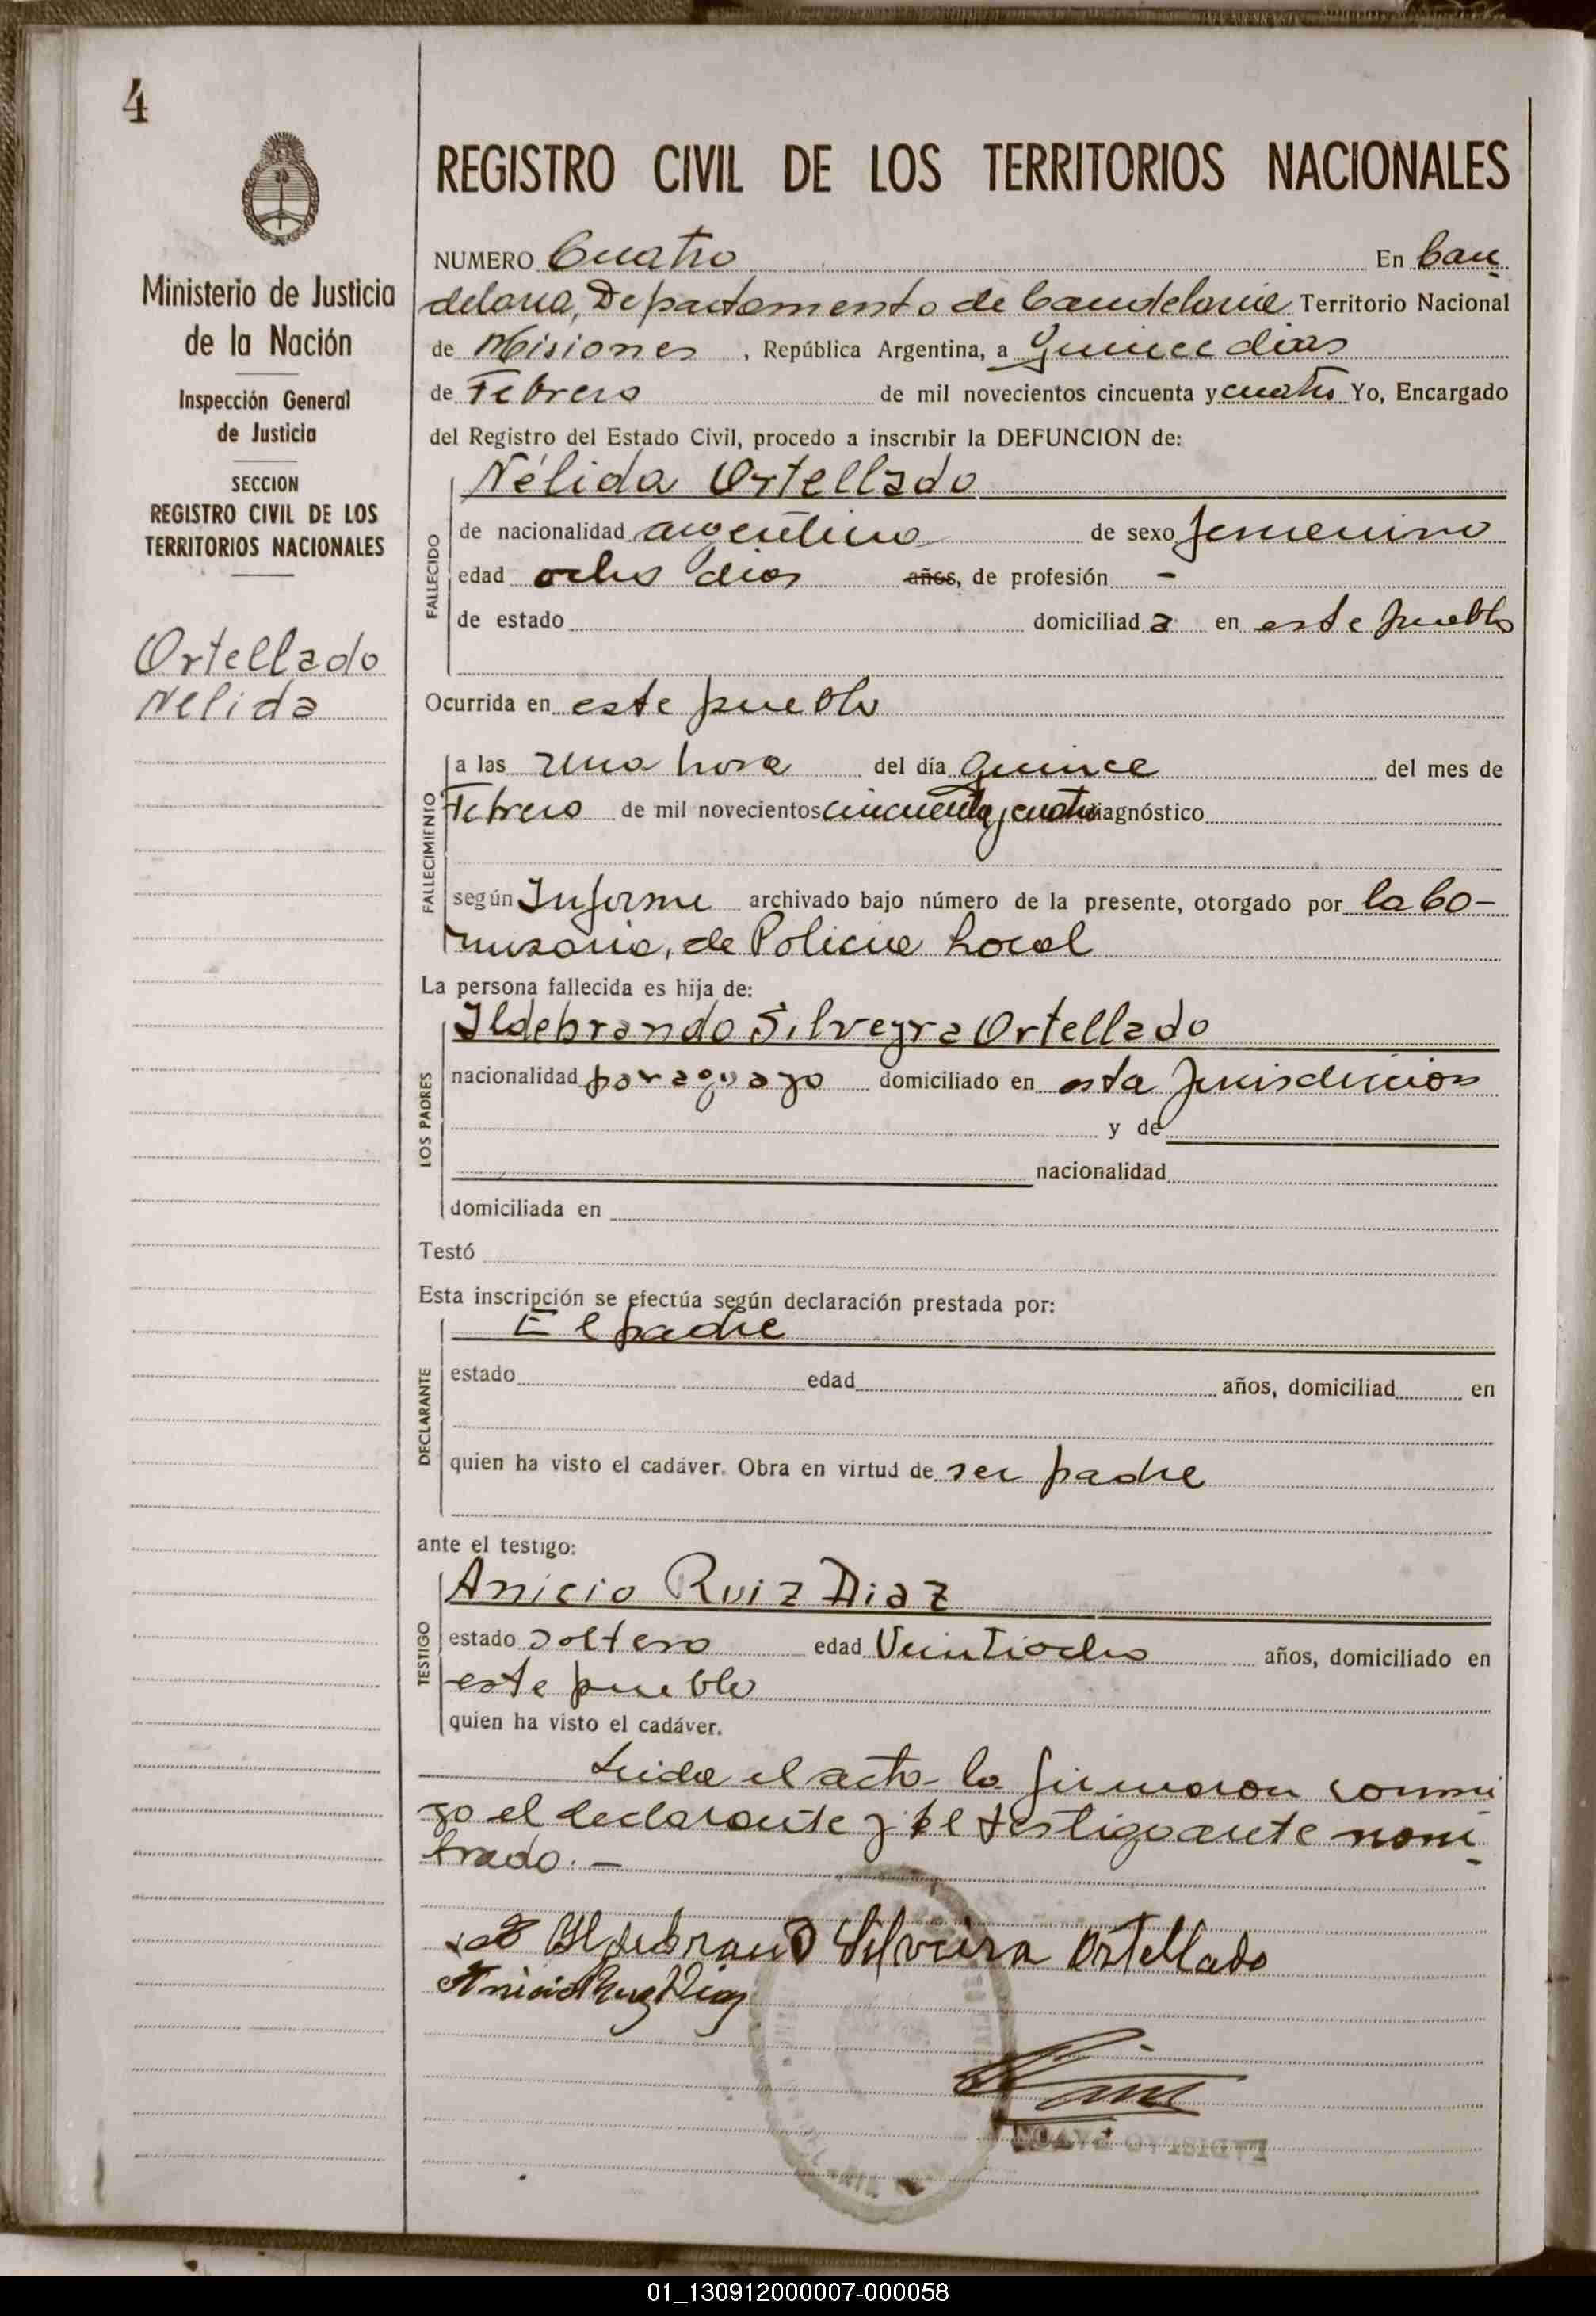 4
Ministerio de Justicia
de la Nación
Inspección General
de Justicia
SECCION
REGISTRO CIVIL DE LOS
TERRITORIOS NACIONALES
Ortellado
Nelida
REGISTRO CIVIL DE LOS TERRITORIOS NACIONALES
NUMERO Cuatro En Can
delaria, Departamento de Candelaria Territorio Nacional
de Misiones, República Argentina, a Quince dias
de Febrero de mil novecientos cincuenta y cuatro Yo, Encargado
del Registro del Estado Civil, procedo a inscribir la DEFUNCION de:
Nélida Ortellado
FALLECIDO
de nacionalidad argentina de sexo femenino
edad ocho dias años, de profesión -
de estado domiciliad a en este pueblo
Ocurrida en este pueblo
FALLECIMIENTO
a las una hora del día quince del mes de
Febrero de mil novecientos cincuenta y cuatro diagnóstico
según Informe archivado bajo número de la presente, otorgado por la Co-
misaria, de Policia Local
La persona fallecida es hija de:
LOS PADRES
Ildebrando Silveyra Ortellado
nacionalidad paraguayo domiciliado en esta Jurisdiccion
y de
nacionalidad
domiciliada en
Testó
Esta inscripción se efectúa según declaración prestada por:
DECLARANTE
El padre
estado edad años, domiciliad en
quien ha visto el cadáver. Obra en virtud de ser padre
ante el testigo:
TESTIGO
Anicio Ruiz Diaz
estado soltero edad Veintiocho años, domiciliado en
este pueblo
quien ha visto el cadáver.
Leida el acta la firmaron conmi
go el declarante y el testigo ante nom
brado. -
Ildebrando Silveira Ortellado
Anicio Ruiz Diaz
01_130912000007-000058